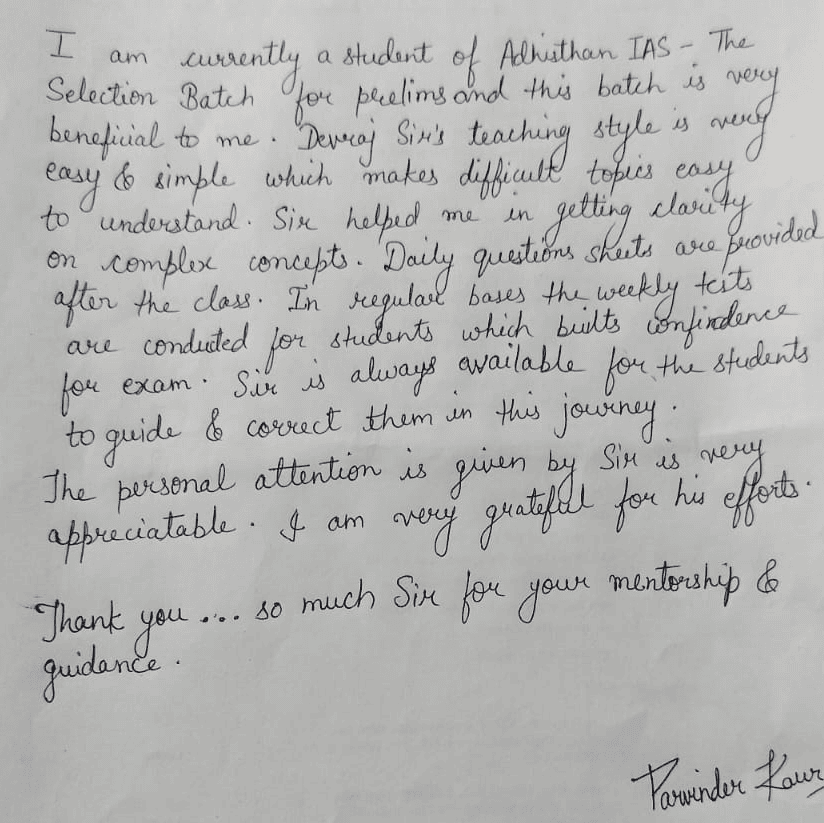 I am currently a student of Adhisthan IAS - The
Selection Batch for prelims and this batch is very
beneficial to me. Devraj Sir's teaching style is very
easy & simple which makes difficult topics easy
to understand. Sir helped me in getting clarity
on complex concepts. Daily questions sheets are provided
after the class. In regular bases the weekly tests
are conducted for students which builts confindence
for exam. Sir is always available for the students
to guide & correct them in this journey.
The personal attention is given by Sir is very
appreciatable. I am very grateful for his efforts.
Thank you .... so much Sir for your mentorship &
guidance.
Parwinder Kaur